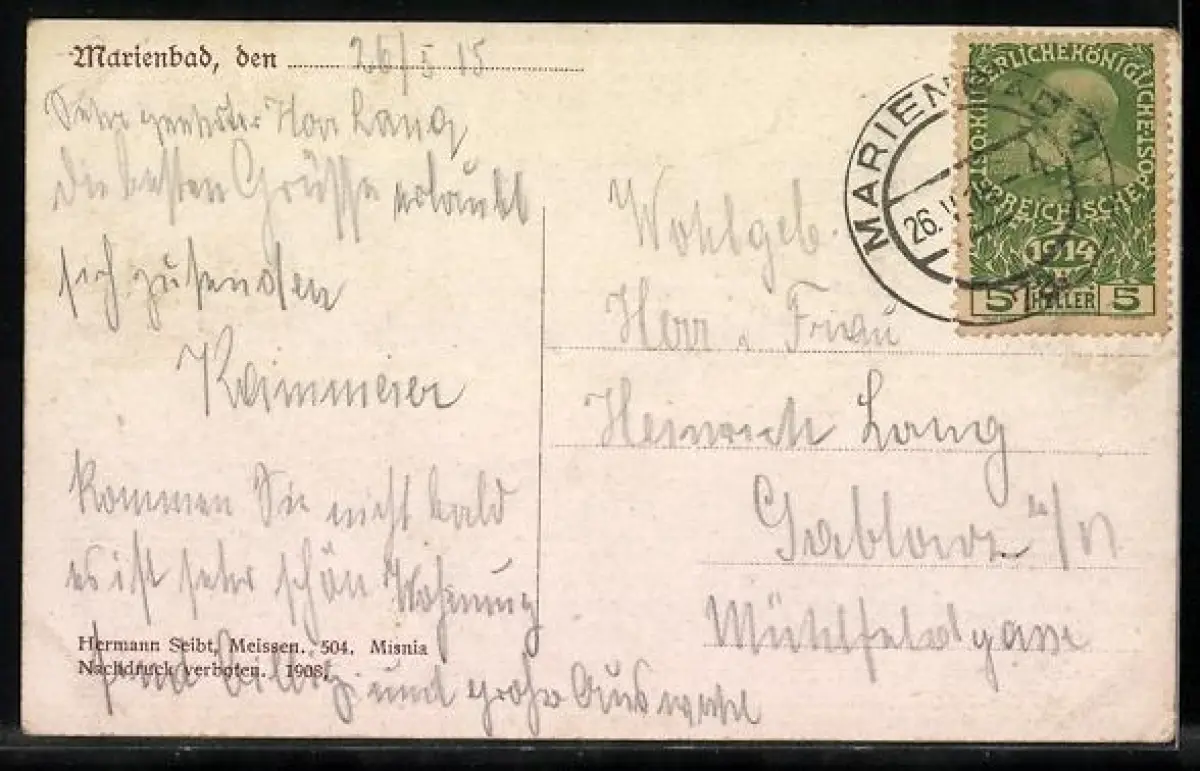 Marienbad, den 26/5 15
Sehr geehrter Herr Lang
die besten Grüsse erlaubt
sich zusenden
kommen Sie nicht bald
es ist sehr schön Wohnung
sind billig und große Auswahl
Hermann Seibt, Meissen. 504. Misnia
Nachdruck verboten. 1908.
Wohlgeb.
Herr u. Frau
Heinrich Lang
Gablonz a/N
Mühlfeldgasse
MARIENBAD
26. V. 15
KAISERLICHEKÖNIGLICHE ÖSTERREICHISCHE POST
1914
5 HELLER 5